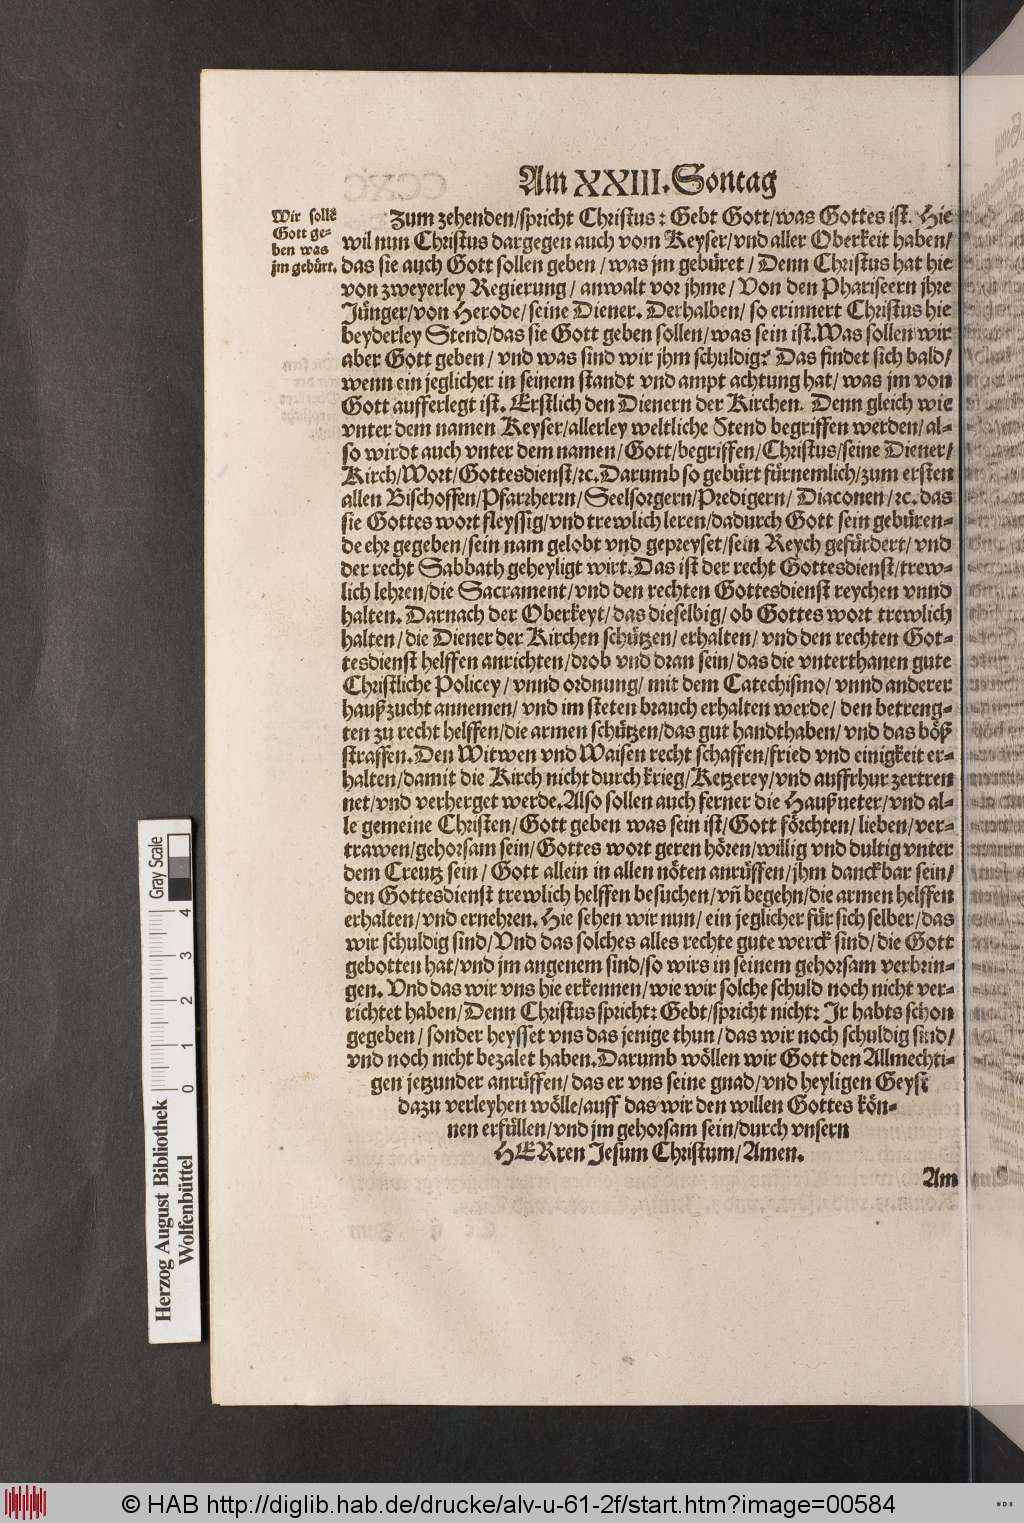 Am XXIII. Sontag
Wir sollẽ
Gott ge-
ben was
jm gebürt.
Zum zehenden/spricht Christus: Gebt Gott/was Gottes ist. Hie
wil nun Christus dargegen auch vom Keyser/vnd aller Oberkeit haben/
das sie auch Gott sollen geben/was jm gebüret/Denn Christus hat hie
von zweyerley Regierung/anwalt vor jhme/Von den Phariseern jhre
Jünger/von Herode/seine Diener. Derhalben/so erinnert Christus hie
beyderley Stend/das sie Gott geben sollen/was sein ist. Was sollen wir
aber Gott geben/vnd was sind wir jhm schuldig? Das findet sich bald/
wenn ein jeglicher in seinem standt vnd ampt achtung hat/was jm von
Gott aufferlegt ist. Erstlich den Dienern der Kirchen. Denn gleich wie
vnter dem namen Keyser/allerley weltliche Stend begriffen werden/al-
so wirdt auch vnter dem namen/Gott/begriffen/Christus/seine Diener/
Kirch/Wort/Gottesdienst/ꝛc. Darumb so gebürt fürnemlich/zum ersten
allen Bischoffen/Pfarrherrn/Seelsorgern/Predigern/Diaconen/ꝛc. das
sie Gottes wort fleyssig/vnd trewlich leren/dadurch Gott sein gebüren-
de ehr gegeben/sein nam gelobt vnd gepreyset/sein Reych gefürdert/vnd
der recht Sabbath geheyligt wirt. Das ist der recht Gottesdienst/trew-
lich lehren/die Sacrament/vnd den rechten Gottesdienst reychen vnnd
halten. Darnach der Oberkeyt/das dieselbig/ob Gottes wort trewlich
halten/die Diener der Kirchen schützen/erhalten/vnd den rechten Got-
tesdienst helffen anrichten/drob vnd dran sein/das die vnterthanen gute
Christliche Policey/vnnd ordnung/mit dem Catechismo/vnnd anderer
haußzucht annemen/vnd im steten brauch erhalten werde/den betreng-
ten zu recht helffen/die armen schützen/das gut handthaben/vnd das böß
straffen. Den Witwen vnd Waisen recht schaffen/fried vnd einigkeit er-
halten/damit die Kirch nicht durch krieg/Ketzerey/vnd auffrhur zertren
net/vnd verherget werde. Also sollen auch ferner die Haußueter/vnd al-
le gemeine Christen/Gott geben was sein ist/Gott förchten/lieben/ver-
trawen/gehorsam sein/Gottes wort geren hören/willig vnd dultig vnter
dem Creutz sein/Gott allein in allen nöten anrüffen/jhm danckbar sein/
den Gottesdienst trewlich helffen besuchen/vñ begehn/die armen helffen
erhalten/vnd ernehren. Hie sehen wir nun/ein jeglicher für sich selber/das
wir schuldig sind/Vnd das solches alles rechte gute werck sind/die Gott
gebotten hat/vnd jm angenem sind/so wirs in seinem gehorsam verbrin-
gen. Vnd das wir vns hie erkennen/wie wir solche schuld noch nicht ver-
richtet haben/Denn Christus spricht: Gebt/spricht nicht: Jr habts schon
gegeben/sonder heysset vns das jenige thun/das wir noch schuldig sind/
vnd noch nicht bezalet haben. Darumb wöllen wir Gott den Allmechti-
gen jetzunder anrüffen/das er vns seine gnad/vnd heyligen Geyst
dazu verleyhen wölle/auff das wir den willen Gottes kön-
nen erfüllen/vnd jm gehorsam sein/durch vnsern
HERren Jesum Christum/Amen.
Am
Gray Scale
0 1 2 3 4
Herzog August Bibliothek
Wolfenbüttel
© HAB http://diglib.hab.de/drucke/alv-u-61-2f/start.htm?image=00584